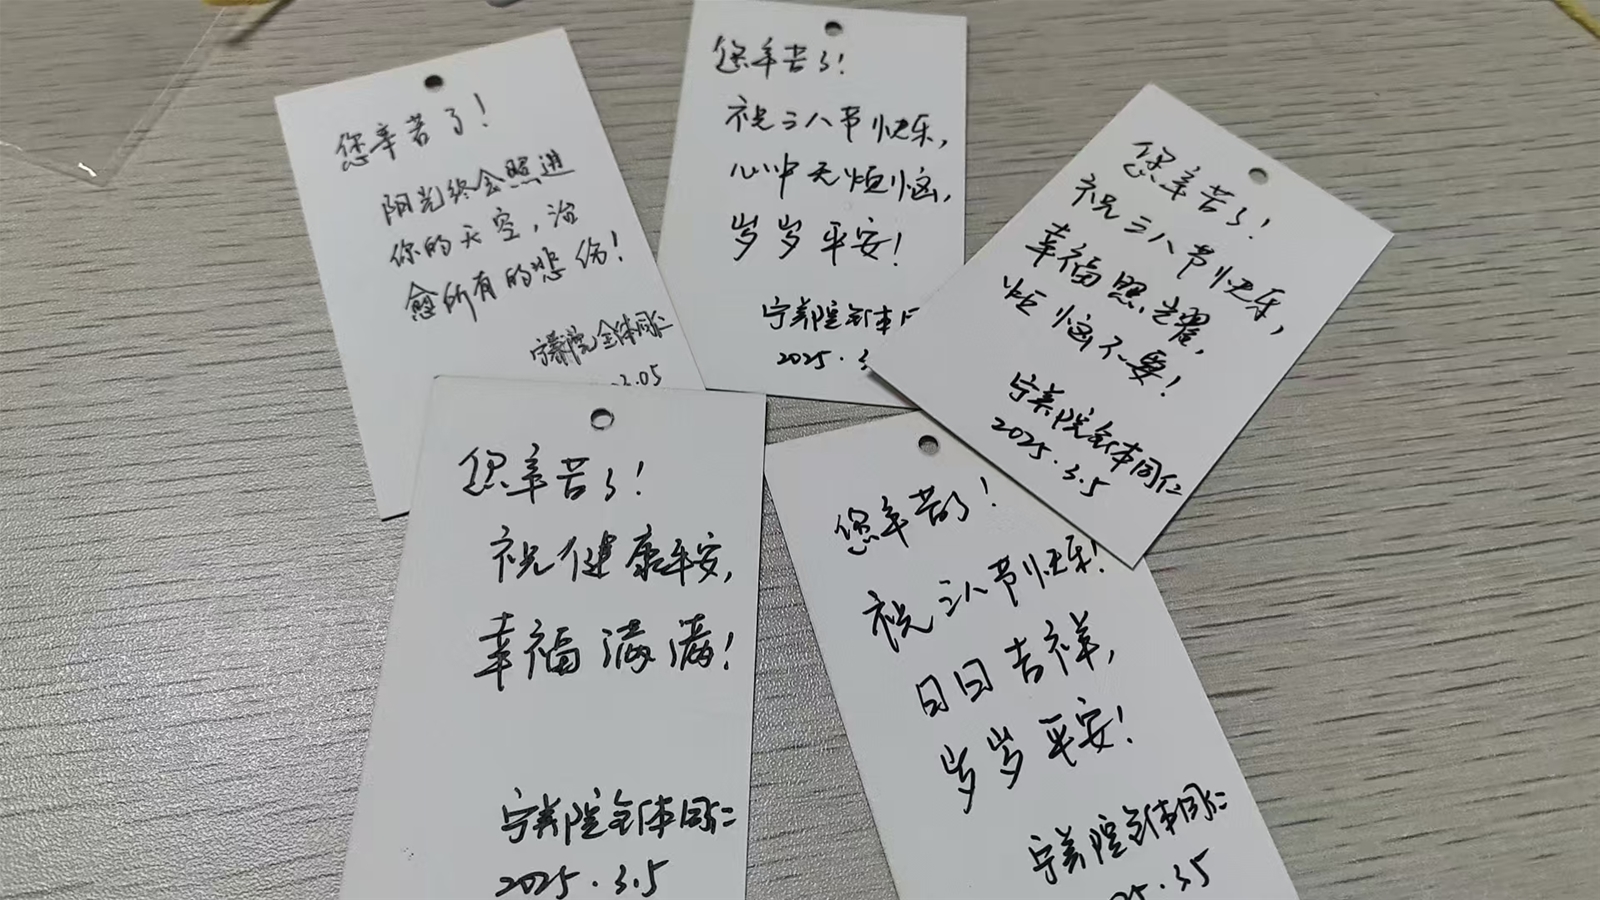 您辛苦了！
阳光终会照进
你的天空，治
愈所有的悲伤！
宁养院全体同仁
.05
您辛苦了！
祝三八节快乐，
心中无烦恼，
岁岁平安！
宁养院全体
2025.3
您辛苦了！
祝三八节快乐，
幸福照光耀，
烦恼不要！
宁养院全体同仁
2025.3.5
您辛苦了！
祝健康平安，
幸福满满！
宁养院全体同仁
2025.3.5
您辛苦了！
祝三八节快乐！
日日吉祥，
岁岁平安！
宁养院全体同仁
25.3.5